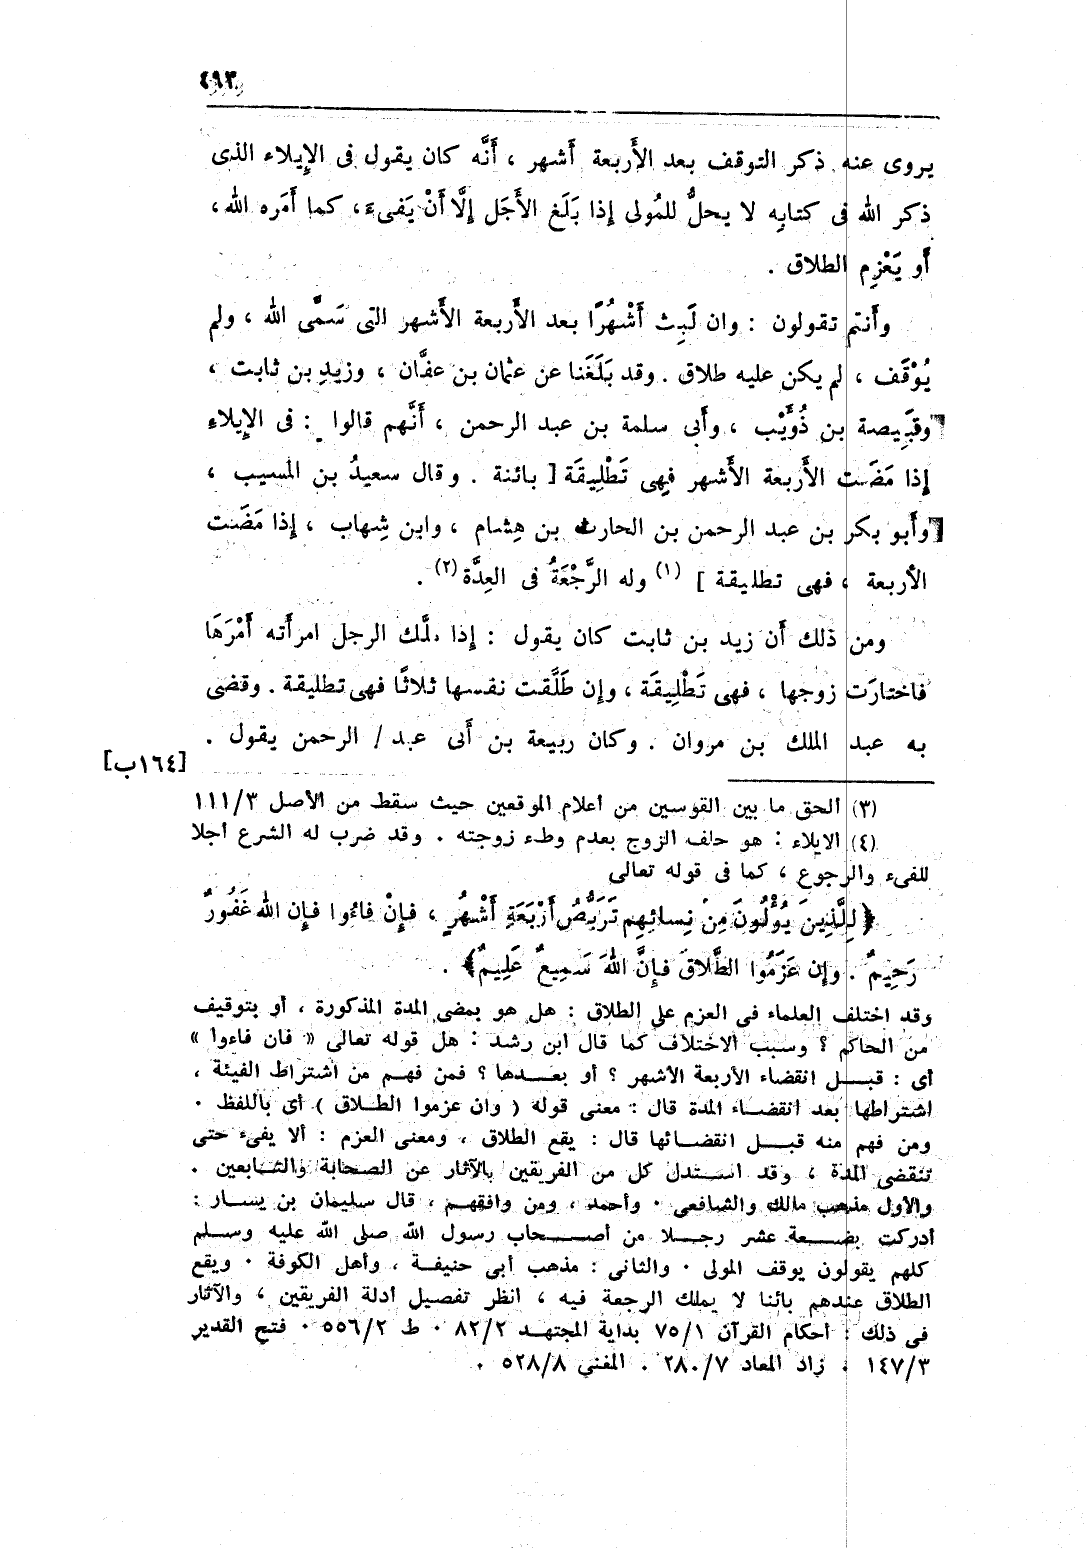 ٤٩٣
يروى عنه ذكر التوقف بعد الأَربعة أَشهر ، أَنَّه كان يقول فى الإِيلاء الذى
ذكر الله فى كتابِه لا يحلُّ للمُولى إِذا بَلَغ الأَجَل إِلَّا أَنْ يَفىءَ، كما أَمَره الله،
أَو يَعْزِم الطلاق .
وأَنتم تقولون : وان لَبِث أَشْهُرًا بعد الأَربعة الأَشهر التى سَمَّى الله ، ولم
يُوْقَف ، لم يكن عليه طلاق . وقد بَلَغَنا عن عثمان بن عفَّان ، وزيدِ بن ثابت ،
وقَبِيصة بن ذُوَيْب ، وأَبى سلمة بن عبد الرحمن ، أَنَّهم قالوا : فى الإِيلاءِ
إِذا مَضَت الأَربعة الأَشهر فهِى تَطْلِيقَة [ بائنة . وقال سعيدُ بن المسيب ،
وأَبو بكر بن عبد الرحمن بن الحارث بن هِشام ، وابن شِهاب ، إِذا مَضَت
الأَربعة ، فهى تطليقة ] (١) وله الرَّجْعَةُ فى العِدَّة (٢) .
ومن ذلك أَن زيد بن ثابت كان يقول : إِذا ملَّك الرجل امرأَته أَمْرَهَا
فاختارَت زوجها ، فهى تَطْلِيقَة ، وإِن طَلَّقت نفسها ثلاثًا فهى تطليقة . وقضى
به عبد الملك بن مروان . وكان ربيعة بن أَبى عبد / الرحمن يقول .
[١٦٤ب]
(٣) الحق ما بين القوسين من أعلام الموقعين حيث سقط من الأصل ١١١/٣
(٤) الايلاء : هو حلف الزوج بعدم وطء زوجته . وقد ضرب له الشرع أجلا
للفىء والرجوع ، كما فى قوله تعالى
﴿ لِلَّذِينَ يُؤْلُونَ مِنْ نِسائِهِم تَرَبُّصُ أَرْبَعَةِ أَشْهُرٍ ، فَإِنْ فاءُوا فإِن الله غَفُورٌ
رَحِيمٌ . وإِن عَزَمُوا الطَّلاقَ فإِنَّ اللهَ سَمِيعٌ عَلِيمٌ﴾ .
وقد اختلف العلماء فى العزم على الطلاق : هل هو بمضى المدة المذكورة ، أو بتوقيف
من الحاكم ؟ وسبب الاختلاف كما قال ابن رشد : هل قوله تعالى « فان فاءوا »
أى : قبل انقضاء الأربعة الأشهر ؟ أو بعدها ؟ فمن فهم من اشتراط الفيئة ،
اشتراطها بعد انقضاء المدة قال : معنى قوله ( وان عزموا الطلاق ) أى باللفظ .
ومن فهم منه قبل انقضائها قال : يقع الطلاق ، ومعنى العزم : ألا يفىء حتى
تنقضى المدة ، وقد استدل كل من الفريقين بالآثار عن الصحابة والتابعين .
والأول مذهب مالك والشافعى . وأحمد ، ومن وافقهم ، قال سليمان بن يسار :
أدركت بضعة عشر رجلا من أصحاب رسول الله صلى الله عليه وسلم
كلهم يقولون يوقف المولى . والثانى : مذهب أبى حنيفة ، وأهل الكوفة . ويقع
الطلاق عندهم بائنا لا يملك الرجعة فيه ، انظر تفصيل أدلة الفريقين ، والآثار
فى ذلك : أحكام القرآن ٧٥/١ بداية المجتهد ٨٢/٢ . ط ٥٥٦/٢ . فتح القدير
١٤٧/٣ . زاد المعاد ٢٨٠/٧ . المغنى ٥٢٨/٨ .